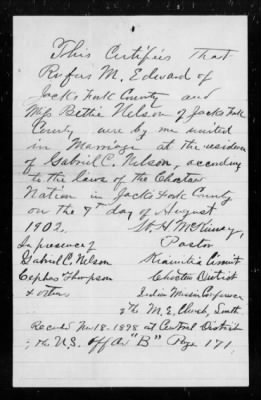 This Certifies That
Rufus M. Edward of
Jacks Fork County and
Miss Bettie Nelson of Jacks Fork
County were by me united
in Marriage at the residence
of Gabriel C. Nelson, according
to the laws of the Choctaw
Nation in Jacks Fork County
on the 7th day of August
1902.
In presence of
Gabriel C. Nelson
Cephas Thompson
& others
McKinney,
Pastor
Kiamitia Circuit
Choctaw District
Indian Mission Conference
M. E. Church, South.
Recorded Nov. 18 - 1898 at Central District
of the U.S. "B" Page 171